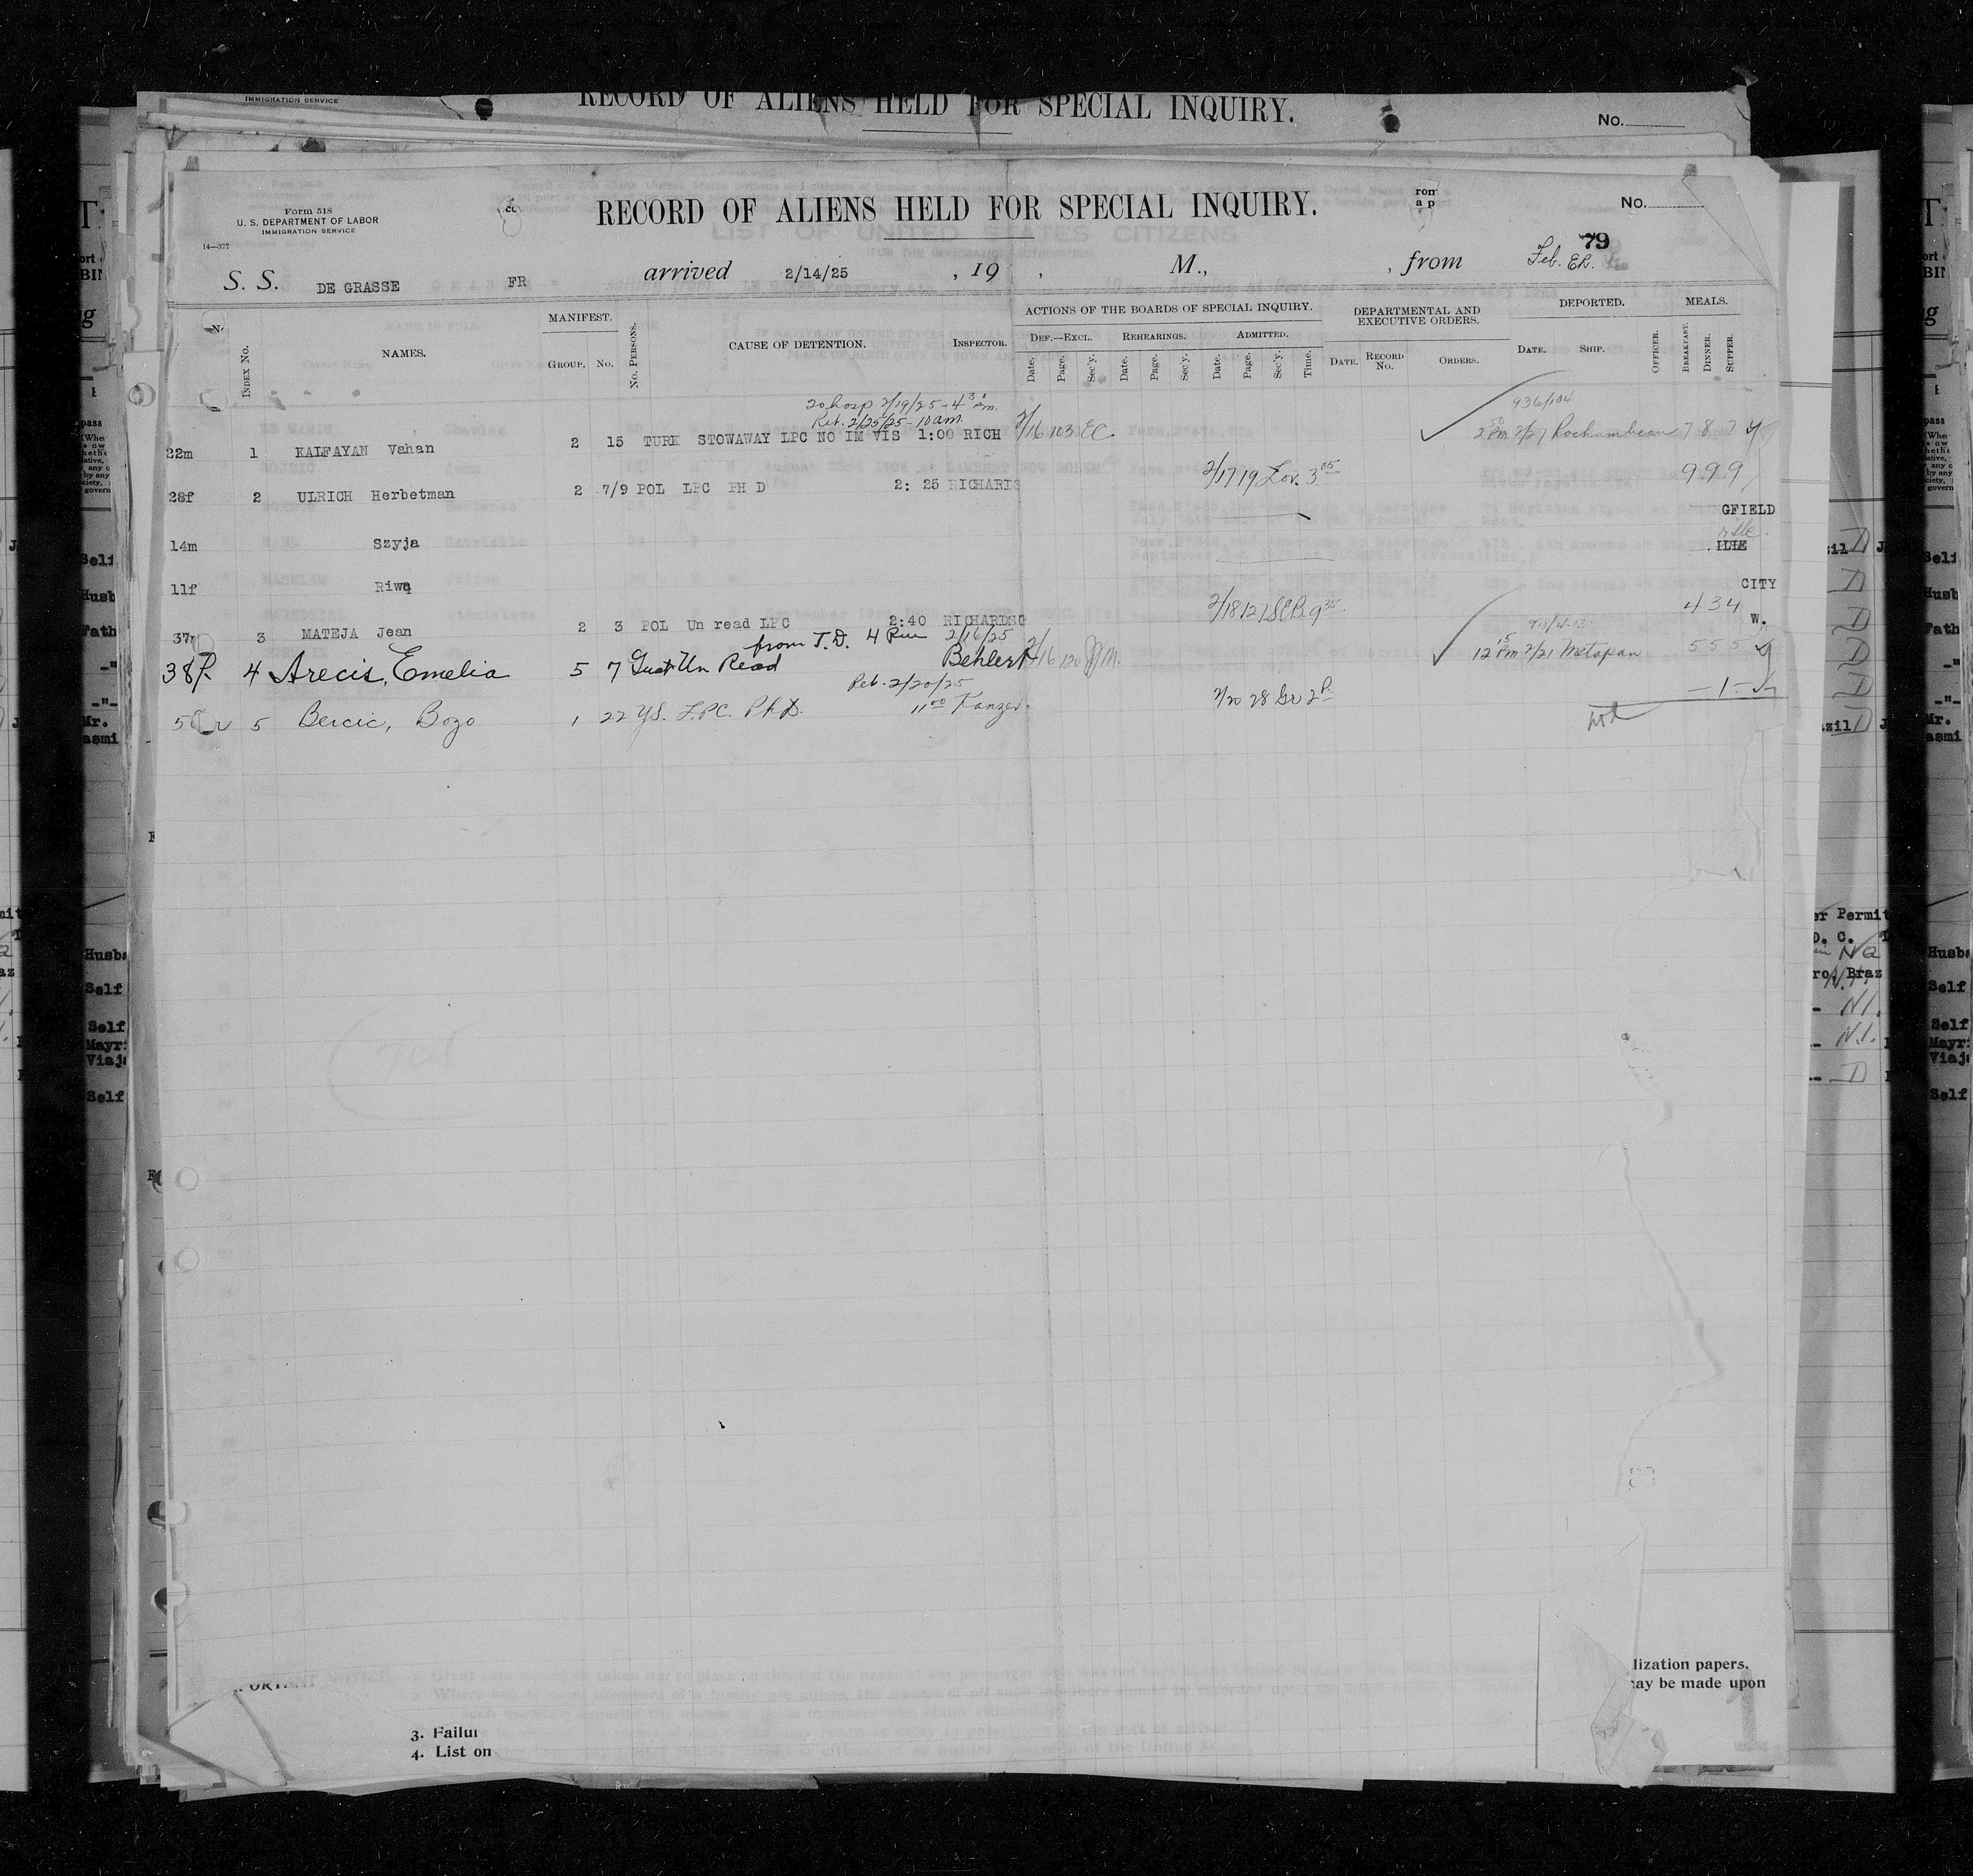 IMMIGRATION SERVICE
RECORD OF ALIENS HELD FOR SPECIAL INQUIRY.
No.
Form 518
U. S. DEPARTMENT OF LABOR
IMMIGRATION SERVICE
14—377
RECORD OF ALIENS HELD FOR SPECIAL INQUIRY.
No.
79
S. S. DE GRASSE FR arrived 2/14/25 , 19 , M., , from Feb.
INDEX No. NAMES. MANIFEST. GROUP. No. No. PERSONS. CAUSE OF DETENTION. INSPECTOR. ACTIONS OF THE BOARDS OF SPECIAL INQUIRY. DEF.—EXCL. REHEARINGS. ADMITTED. DEPARTMENTAL AND EXECUTIVE ORDERS. DEPORTED. MEALS.
Date. Page. Sec'y. Date. Page. Sec'y. Date. Page. Sec'y. Time. DATE. RECORD No. ORDERS. DATE. SHIP. OFFICER. BREAKFAST. DINNER. SUPPER.
To hosp 2/19/25 - 4 30 pm. 936/104
Ret. 2/25/25 - 10 am
22m 1 KALFAYAN Vahan 2 15 TURK STOWAWAY LPC NO IM VIS 1:00 RICH 2/16 103 EC 2 50 Pm 2/27 Rochambeau 7 8 7
28f 2 ULRICH Herbetman 2 7/9 POL LPC PH D 2: 25 RICHARDS 2/17 19 Lov. 3 05 9 9 9
GFIELD
14m Szyja
11f Riwa
CITY
37m 3 MATEJA Jean 2 3 POL Un read LPC 2:40 RICHARDSO 2/18 121 SEB 9 35 4 3 4
W.
from T.D. 4 Pm 2/16/25
38f 4 Arecis, Emelia 5 7 Guat Un Read Behlert 2/16 120 JJM. 12 15 Pm 2/21 Metapan 5 5 5
Ret. 2/20/25
5 Bercic, Bozo 1 22 YS. LPC. Ph D. 11 00 Kanzer. 2/20 28 Gr 2 P. - 1 -
3. Failur
4. List on
lization papers.
may be made upon
er Permit
D. C.
ro, Braz
Husb
Self
Self
Mayr
Viaj
Self